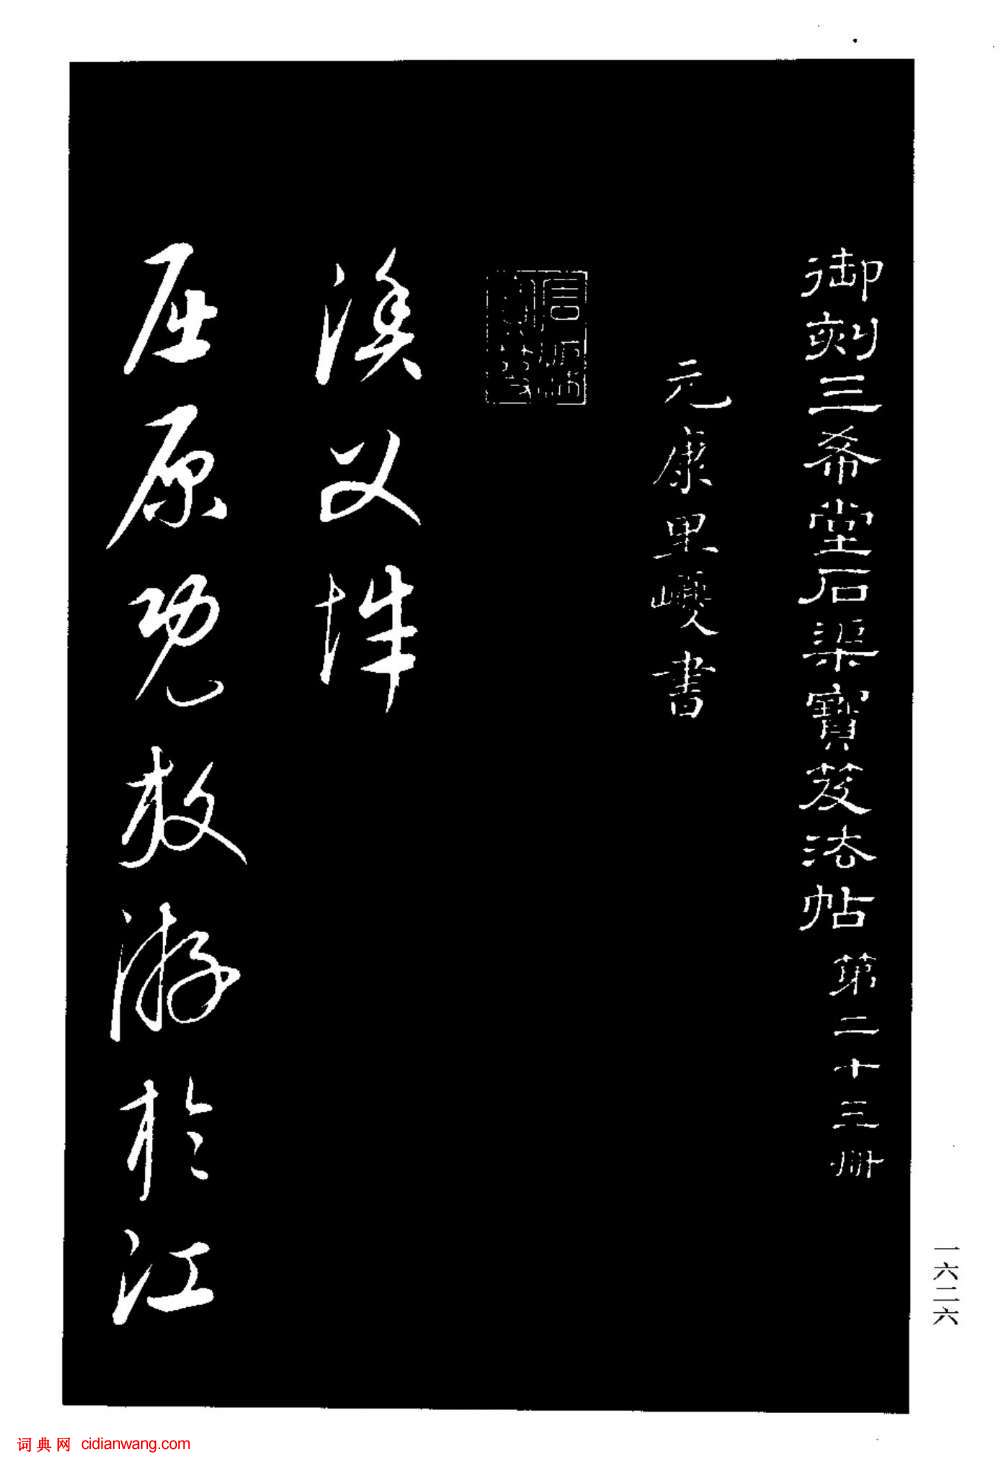 御刻三希堂石渠寶笈法帖 第二十三册
元康里巎書
漁父辭
屈原既放游於江
一六二六
词典网 cidianwang.com